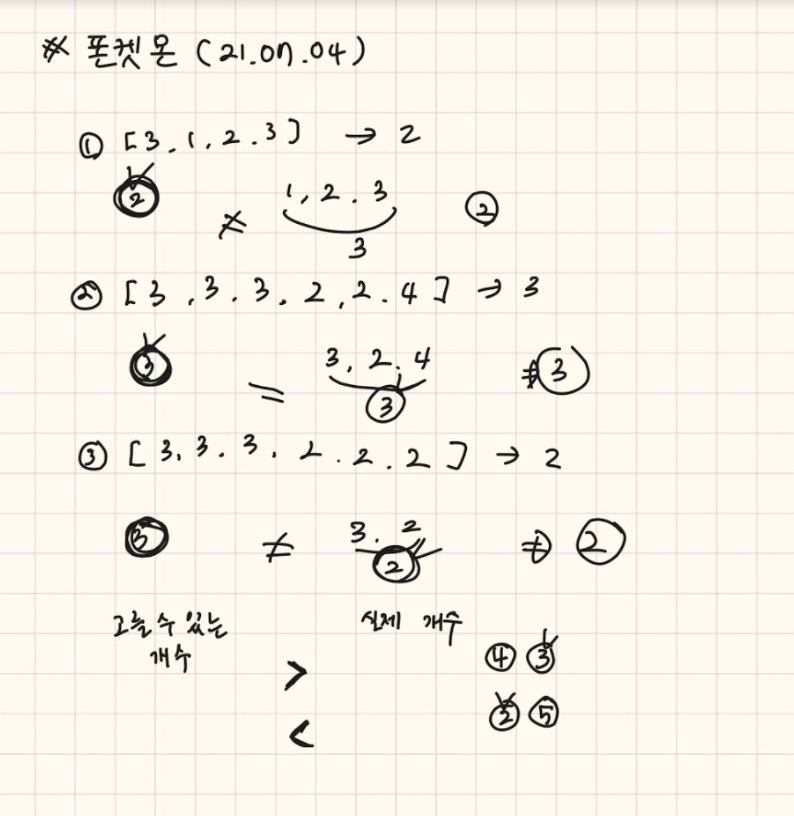 ※ 폰켓몬 (21.07.04)
① [3,1,2,3] → 2
② ≠ 1,2,3 ②
3
② [3,3,3,2,2,4] → 3
③ = 3,2,4 ⇒ ③
③
③ [3,3,3,2,2,2] → 2
③ ≠ 3,2 ⇒ ②
②
고를 수 있는 실제 개수
개수
> ④ ③
< ② ⑤